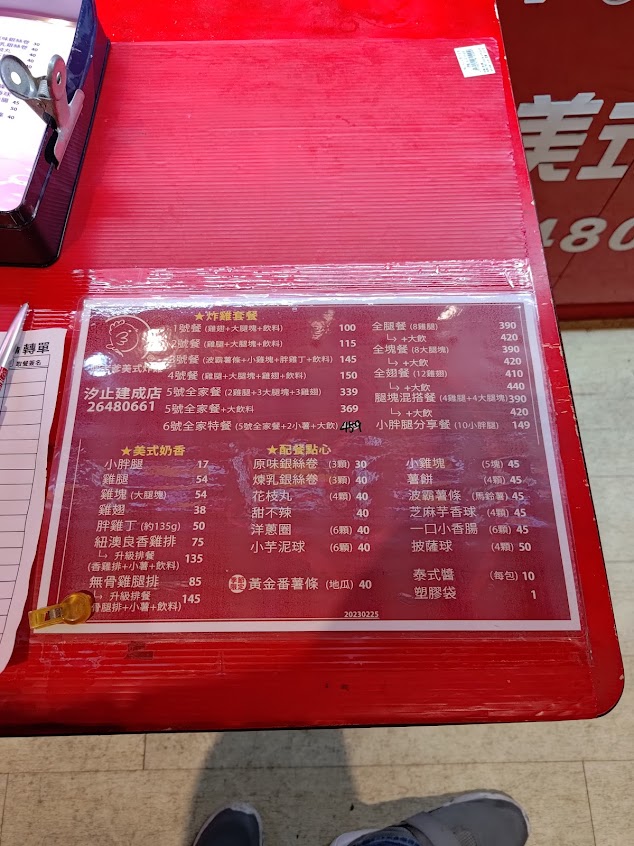 40
45
30
40
美式
480
轉單
★炸雞套餐
1號餐 (雞翅+大腿塊+飲料) 100
2號餐 (雞腿+大腿塊+飲料) 115
3號餐 (波霸薯條+小雞塊+胖雞丁+飲料) 145
4號餐 (雞腿+大腿塊+雞翅+飲料) 150
5號全家餐 (2雞腿+3大腿塊+3雞翅) 339
5號全家餐+大飲料 369
6號全家特餐 (5號全家餐+2小薯+大飲)
汐止建成店
26480661
全腿餐 (8雞腿) 390
↳ +大飲 420
全塊餐 (8大腿塊) 390
↳ +大飲 420
全翅餐 (12雞翅) 410
↳ +大飲 440
腿塊混搭餐 (4雞腿+4大腿塊) 390
↳ +大飲 420
小胖腿分享餐 (10小胖腿) 149
★美式奶香
小胖腿 17
雞腿 54
雞塊 (大腿塊) 54
雞翅 38
胖雞丁 (約135g) 50
紐澳良香雞排 75
↳ 升級排餐 135
(香雞排+小薯+飲料)
無骨雞腿排 85
↳ 升級排餐 145
骨腿排+小薯+飲料)
★配餐點心
原味銀絲卷 (3顆) 30
煉乳銀絲卷 (3顆) 40
花枝丸 (4顆) 40
甜不辣 40
洋蔥圈 (6顆) 40
小芋泥球 (6顆) 40
黃金番薯條 (地瓜) 40
小雞塊 (5塊) 45
薯餅 (4顆) 45
波霸薯條 (馬鈴薯) 45
芝麻芋香球 (4顆) 45
一口小香腸 (6顆) 45
披薩球 (4顆) 50
泰式醬 (每包) 10
塑膠袋 1
20230225